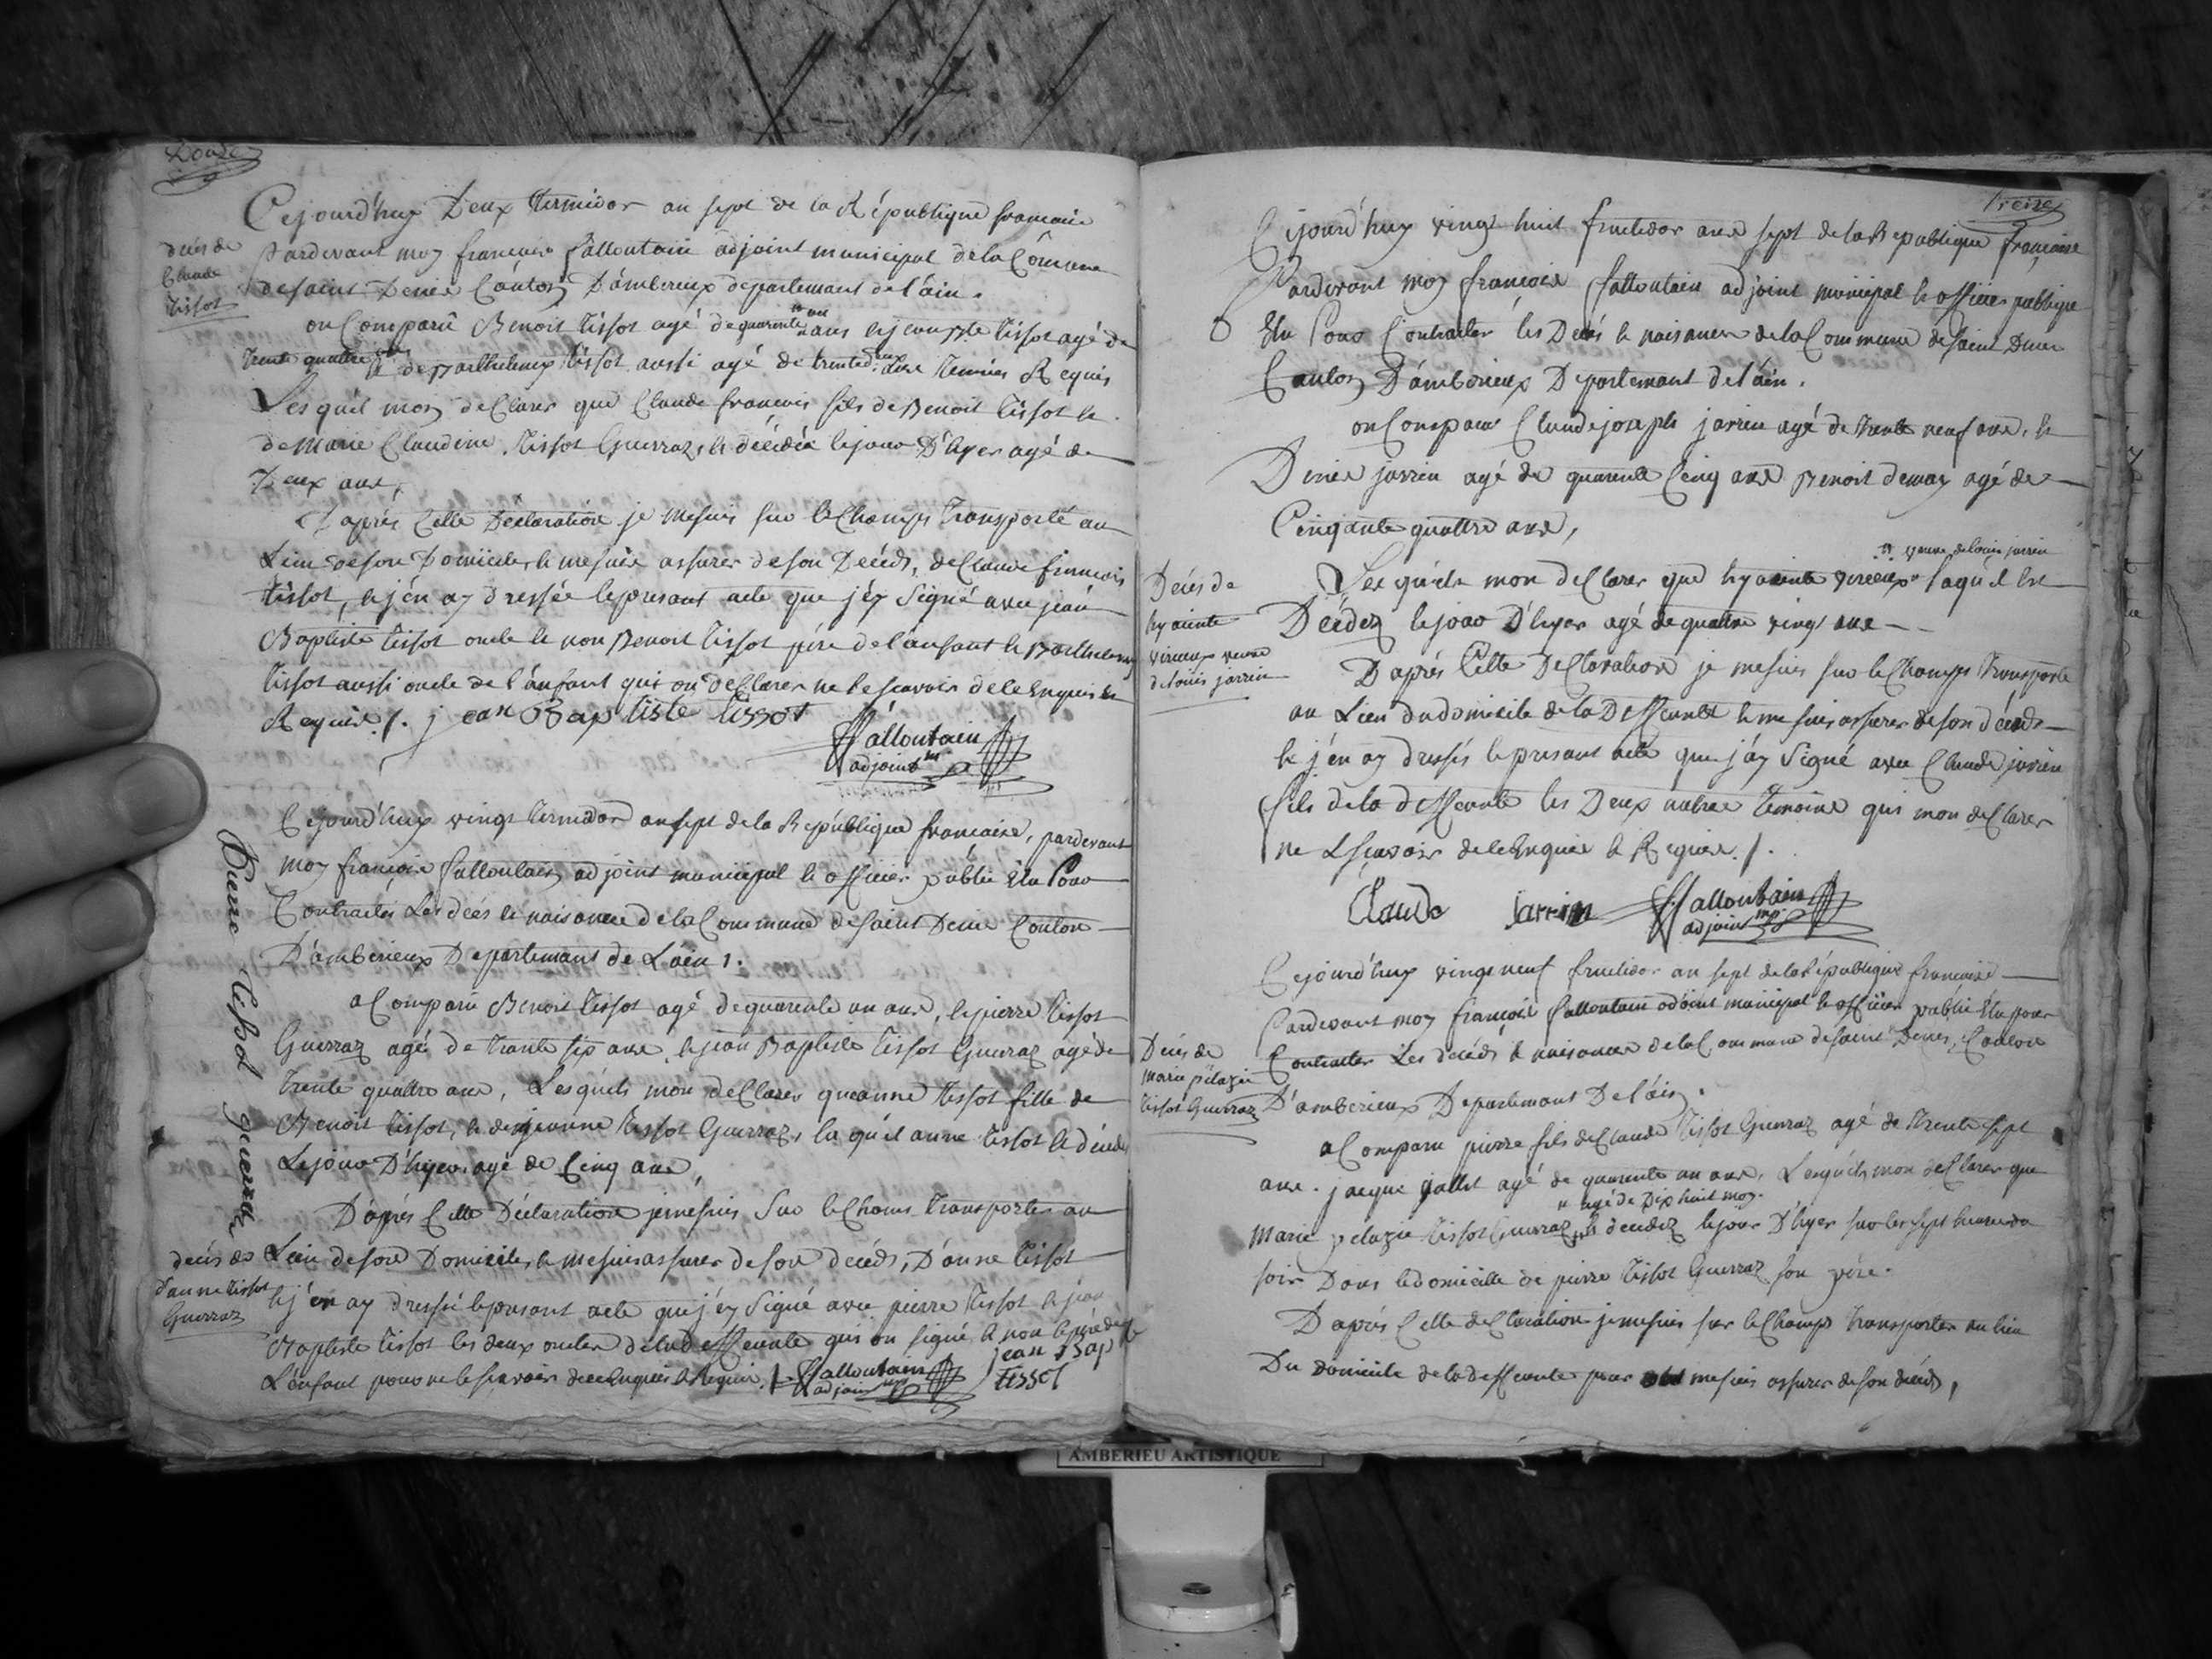 Douze
Cejourd'huy Deux termidor an sept de la République francaise
décès de
Claude
tissot
pardevant moy francois fattoutain adjoint municipal de la Cômune
de saint Denis Canton D'ambereux departemant de l'ain.
on Comparû Benoit tissot agé de quarente un ans et jean Bte tissot agé de
trente quattre ans et de Barthelemy tissot aussi agé de trente deux temoins Requis
Lesquel mon declarer que Claude francois fils de Benoit tissot et
de marie Claudine tissot Guerraz, et décédée lejour D'hyer agé de
Deux ans,
D'après Cette Déclaration je me suis sur le Champs transporté au
Lieu de son Domicile, et me suis assurer de son Decéds, de Claude francois
tissot, et j'én ay dressée le presant acte que j'éy Signé avec jean
Baptiste tissot oncle et non Benoit tissot père de l'anfant et Barthelemy
tissot aussi oncle de l'anfant qui on declarer ne le scavoir de ce Enquis et
Requis ./. jean Baptiste tissot
fattoutain
adjoint mpl
Cejourd'huy vingt termidor an sept de la République francaise, pardevant
moy francois fattoutain adjoint municipal et officier public Elu Pour
Contracter Les décès et naisance de la Commune de saint Denis Canton
D'ambérieux Departemant de L'ain.
a Comparu Benoit tissot agé de quarente un ans, et pierre tissot
Guerraz agé de trante six ans, et jean Baptiste tissot Guerraz agé de
trente quattre ans, Lesquels mon declarer que anne tissot fille de
Benoit tissot, et de jeanne tissot Guerraz, la quel anne tissot et décédé
Lejour D'hyer agé de Cinq ans,
D'après Cette Déclaration je me suis Sur le Chams transporter au
décès de
d'anne tissot
Guerraz
Lieu de son Domicile, et me suis assurer de son decéds, D'anne tissot
et j'en ay dressé le presant acte que j'éy Signé avec pierre tissot et jean
Baptiste tissot les deux oncles de la deffeunte qui on signé et non le père de
L'enfant pour ne le scavoir de ce Enquis et Requis ./. fattoutain
adjoint mpl
jean Bap
tissot
Pierre tissot guerraz
Treize
Cejourd'huy vingt huit fructidor ans sept de la Republique francaise
Pardevant moy francois fattoutain adjoint municipal et officier publique
Elu Pour Contracter les Decès et naisance de la Commune de saint Denis
Canton D'ambérieux Departemant de l'ain.
on Comparu Claude joseph jarrin agé de trente neuf ans, et
Denis jarrin agé de quarente Cinq ans Benoit demay agé de
Cinqante quattre ans,
Décès de
hyacinte
vincent veuve
de louis jarrin
Lesquels mon declarer que hyacinte vincent " veuve de louis jarrin laquel et
Décédez lejour D'hyer agé de quattre vingt ans
D'après Cette Declaration je me suis sur le Champs transporté
au Lieu du domicile de la Deffeunte et me suis assurer de son décéds
et j'én ay dressés le presant acte que j'ay Signé avec Claude jarrin
fils de la deffeunte les Deux autres temoins qui mon declarer
ne L scavoir de ce Enquis et Requis ./.
Claude jarrin fattoutain
adjoint mpl
Cejourd'huy vingt neuf fructidor an sept de la République francaise
Pardevant moy francois fattoutain adoint municipal et officier public Elu pour
Contracter Les décéds et naisance de la Commune de saint Denis, Canton
Décès de
marie pelazie
tissot Guerraz
D'amberieux Departemant De l'ain.
a Comparu pierre fils de Claude tissot Guerraz agé de trente sept
ans. jacque gallet agé de quarente un ans, Lesquels mon declarer que
" agé de Dix huit moy.
marie pelazie tissot Guerraz et decedez lejour D'hyer sur les sept heures du
soir Dans le domicille de pierre tissot Guerraz son père.
D'après Cette declaration je me suis sur le Champs transporter au lieu
Du domicile de la deffeunte pour me suis assurer de son décéds,
AMBERIEU ARTISTIQUE